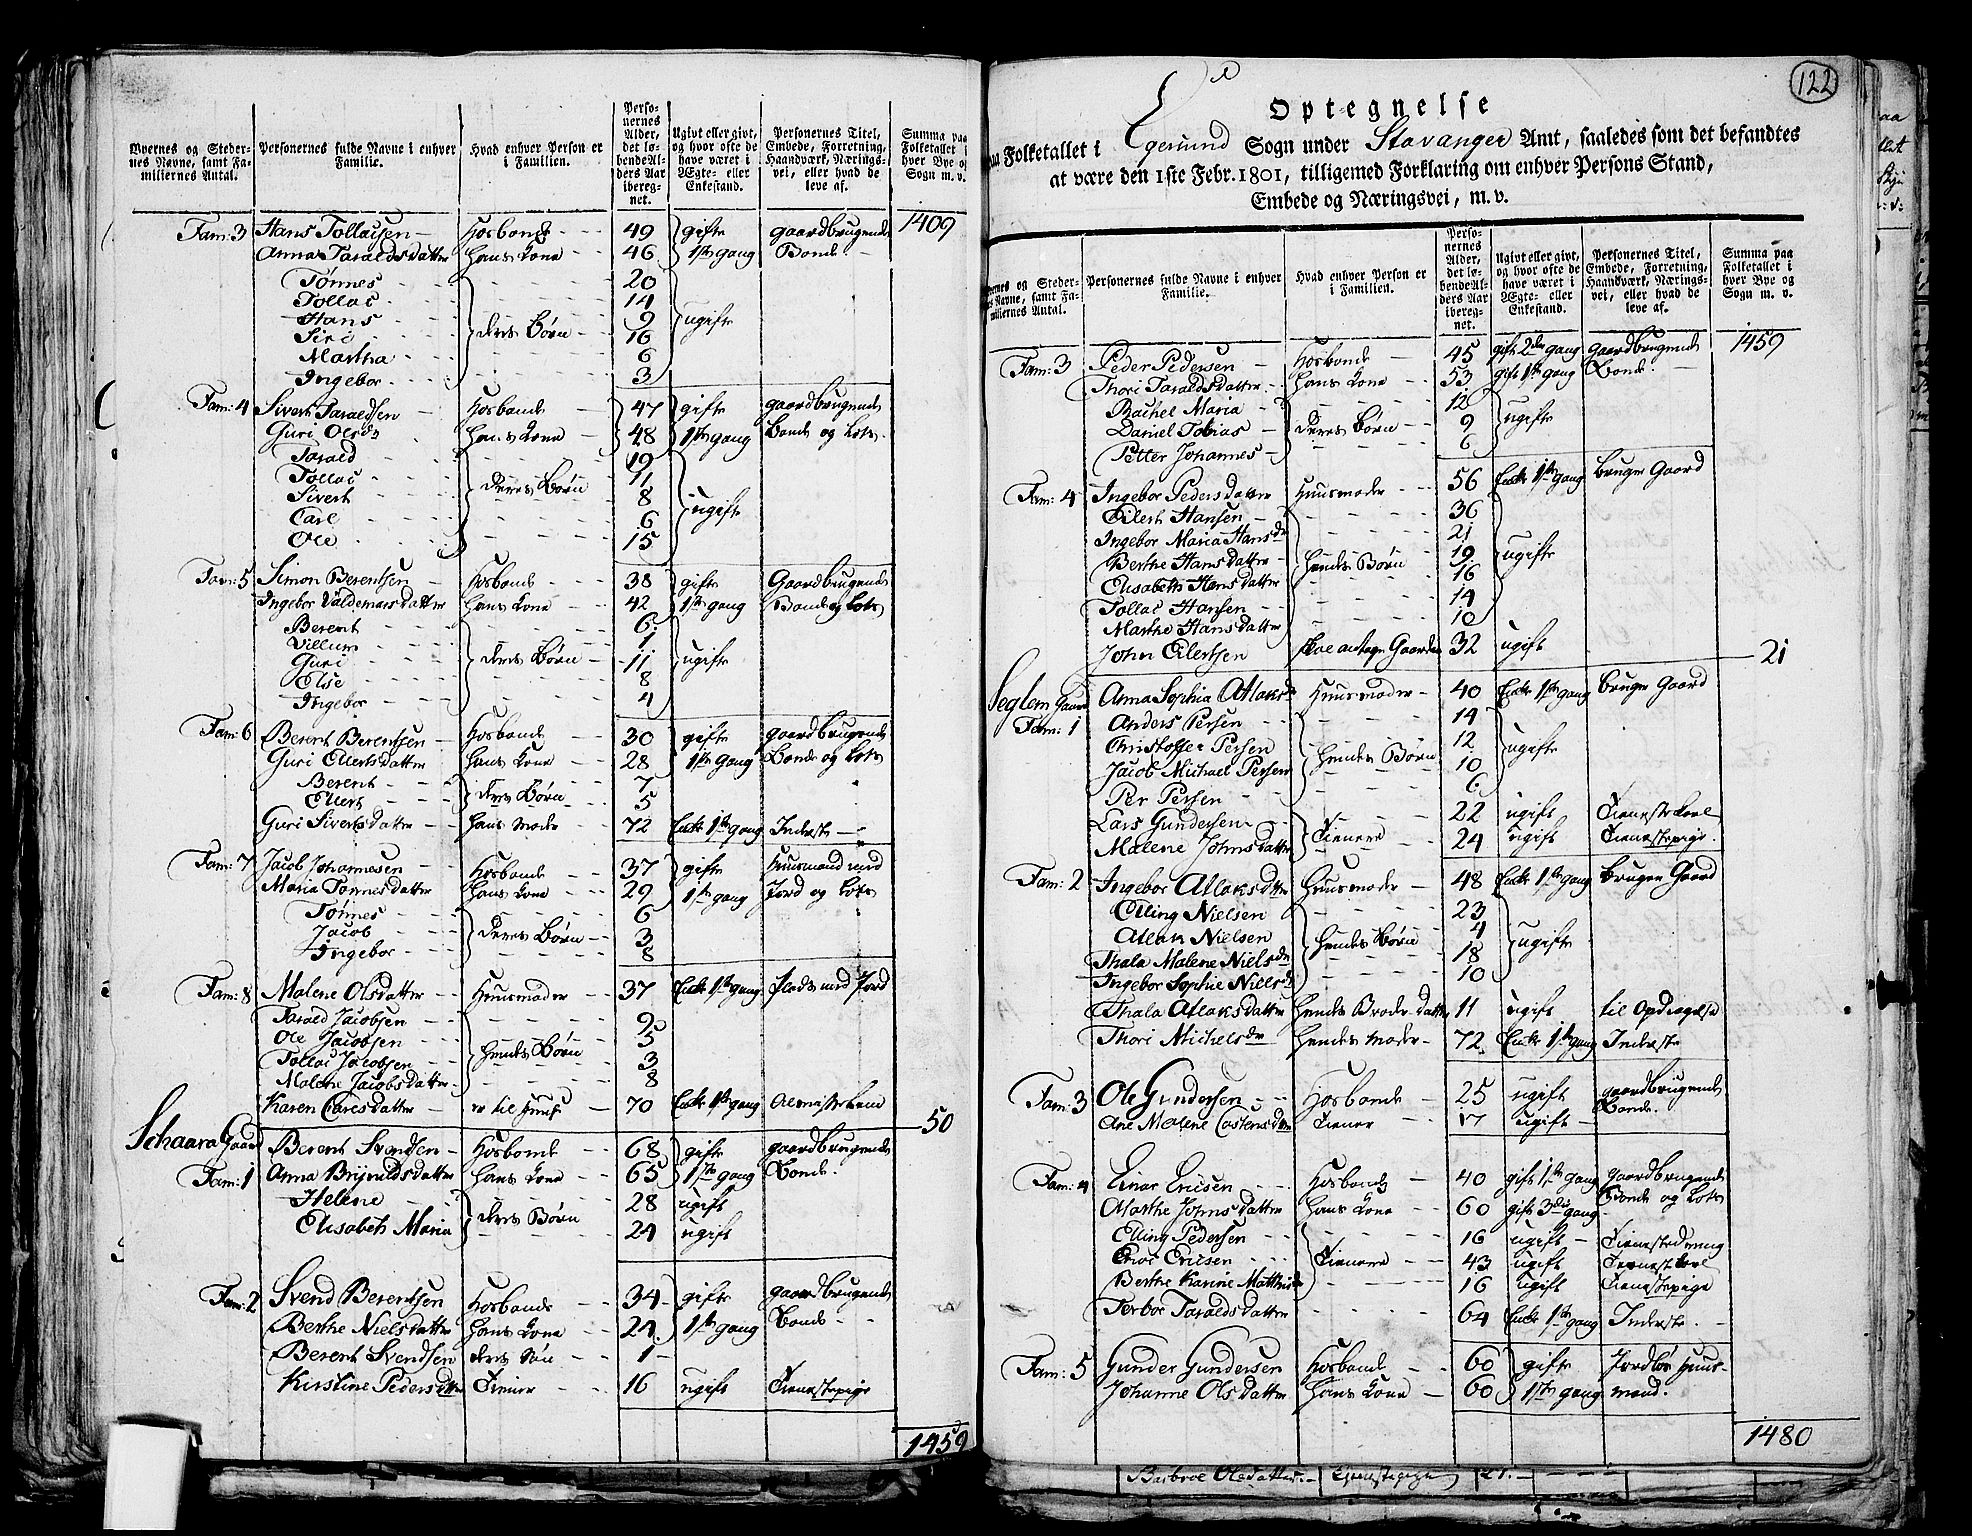 Byernes og Steder- nes Navne, samt Fa- miliernes Antal. | Personernes fulde Navne i enhver Familie. | Hvad enhver Person er i Familien. | Perso- nernes Alder, det lø- bende Al- ders Aar ibereg- net. | Ugivt eller givt, og hvor ofte de have været i Ægte- eller Enkestand. | Personernes Titel, Embede, Forretning, Haandværk, Nærings- vei, eller hvad de leve af. | Summa paa Folketallet i hver Bye og Sogn m. v.
1409
Fam: 3 Hans Tollacsen Hosbonde 49 gifte gaardbrugende
Anna Taraldsdatter Hans Kone 46 1ste gang Bonde
Tønnes 20
Tollac 14
Hans 9
Siri deres Børn 16 ugifte
Martha 6
Ingebor 3
Fam: 4 Sivert Taraldsen Hosbonde 47 gifte gaardbrugende
Guri Olsdr Hans Kone 48 1ste gang Bonde og Lots
Tarald 19
Tollac 11
Sivert deres Børn 8 ugifte
Carl 6
Ole 15
Fam: 5 Simon Berentsen Hosbonde 38 gifte Gaardbrugende
Ingebor Valdemarsdatter Hans Kone 42 1ste gang Bonde og Lots
Berent 6
Villum 1
Guri deres Børn 11 ugifte
Else 8
Ingebor 4
Fam: 6 Berent Berentsen Hosbonde 30 gifte gaardbrugende
Guri Eilertsdatter Hans Kone 28 1ste gang Bonde og Lots
Berent 7
Eilert deres Børn 5
Guri Sivertsdatter Hans Moder 72 Enke 1ste gang Inderste
Fam: 7 Jacob Johannesen Hosbonde 37 gifte Huusmand med
Maria Tønnesdatter Hans Kone 29 1ste gang Jord og Lots
Tønnes 6
Jacob deres Børn 3
Ingebor 8
Fam: 8 Malene Olsdatter Huusmoder 37 Enke 1ste gang Plads med Jord
Tarald Jacobsen 9
Ole Jacobsen 5
Tollac Jacobsen Hendes Børn 3
Malene Jacobsdatter 8
Karen Carlsdatter er til Huus 70 Enke 1ste gang Almisselem
50
Schaara Gaard Berent Svendsen Hosbonde 68 gifte gaardbrugende
Fam: 1 Anna Brynildsdatter Hans Kone 65 1ste gang Bonde
Helene 28 ugift
Elisabeth Maria deres Børn 24 ugift
Fam: 2 Svend Berentsen Hosbonde 34 gifte gaardbrugende
Berthe Nielsdatter Hans Kone 24 1ste gang Bonde
Berent Svendsen deres Søn 1
Kirstine Pedersdatter Tiener 16 ugift Tienestepige
1459
122
Optegnelse
paa Folketallet i Egersund Sogn under Stavanger Amt, saaledes som det befandtes
at være den 1ste Febr. 1801, tilligemed Forklaring om enhver Persons Stand,
Embede og Næringsvei, m. v.
Byernes og Steder- nes Navne, samt Fa- miliernes Antal. | Personernes fulde Navne i enhver Familie. | Hvad enhver Person er i Familien. | Perso- nernes Alder, det lø- bende Al- ders Aar ibereg- net. | Ugivt eller givt, og hvor ofte de have været i Ægte- eller Enkestand. | Personernes Titel, Embede, Forretning, Haandværk, Nærings- vei, eller hvad de leve af. | Summa paa Folketallet i hver Bye og Sogn m. v.
1459
Fam: 3 Peder Pedersen Hosbonde 45 gift 2den gang gaardbrugende
Thori Taraldsdatter Hans Kone 53 gift 1ste gang Bonde
Rachel Maria 12
Daniel Tobias deres Børn 9 ugifte
Petter Johannes 6
Fam: 4 Ingebor Pedersdatter Huusmoder 56 Enke 1ste gang bruger Gaard
Eilert Hansen 36
Ingebor Maria Hansdr 21
Berthe Hansdatter 19
Elisabeth Hansdatter Hendes Børn 16 ugifte
Tollac Hansen 14
Marthe Hansdatter 10
John Eilertsen skal antage Gaarden 32 ugift
21
Seglem Gaard Anna Sophia Aslaksdr Huusmoder 40 Enke 1ste gang bruger Gaard
Fam: 1 Anders Persen 14
Christoffer Persen 12
Jacob Michael Persen Hendes Børn 10 ugifte
Per Persen 6
Lars Gundersen 22 ugift Tienestekarl
Malene Johnsdatter Tienere 24 ugift Tienestepige
Fam: 2 Ingebor Aslaksdtter Huusmoder 48 Enke 1ste gang bruger Gaard
Elling Nielsen 23
Aslak Nielsen 4
Thala Malene Nielsdr Hendes Børn 18 ugifte
Ingebor Sophie Nielsdr 10
Thala Aslaksdatter Hendes Broder datter 11 ugift til Opdragelse
Thori Michelsdr Hendes Moder 72 Enke 1ste gang Inderste
Fam: 3 Ole Gundersen Hosbonde 25 ugift gaardbrugende
Ane Malene Castensdtter Tiener 17 ugift Bonde
Fam: 4 Einar Ericsen Hosbonde 40 gift 1ste gang Gaardbrugende
Marthe Johnsdatter Hans Kone 60 gift 3die gang Bonde og Lots
Elling Pedersen 16 ugift Tienestedreng
Eric Ericsen Tienere 43 ugift Tienestekarl
Berthe Karine Matthisdr 16 ugift Tienestepige
Torbor Taraldsdatter 64 Enke 1ste gang Inderste
Fam: 5 Gunder Gundersen Hosbonde 60 gifte Jordløs Huus-
Johanne Olsdatter Hans Kone 60 1ste gang mand.
1480
Barbroe Olsdatter Tienestepige 21